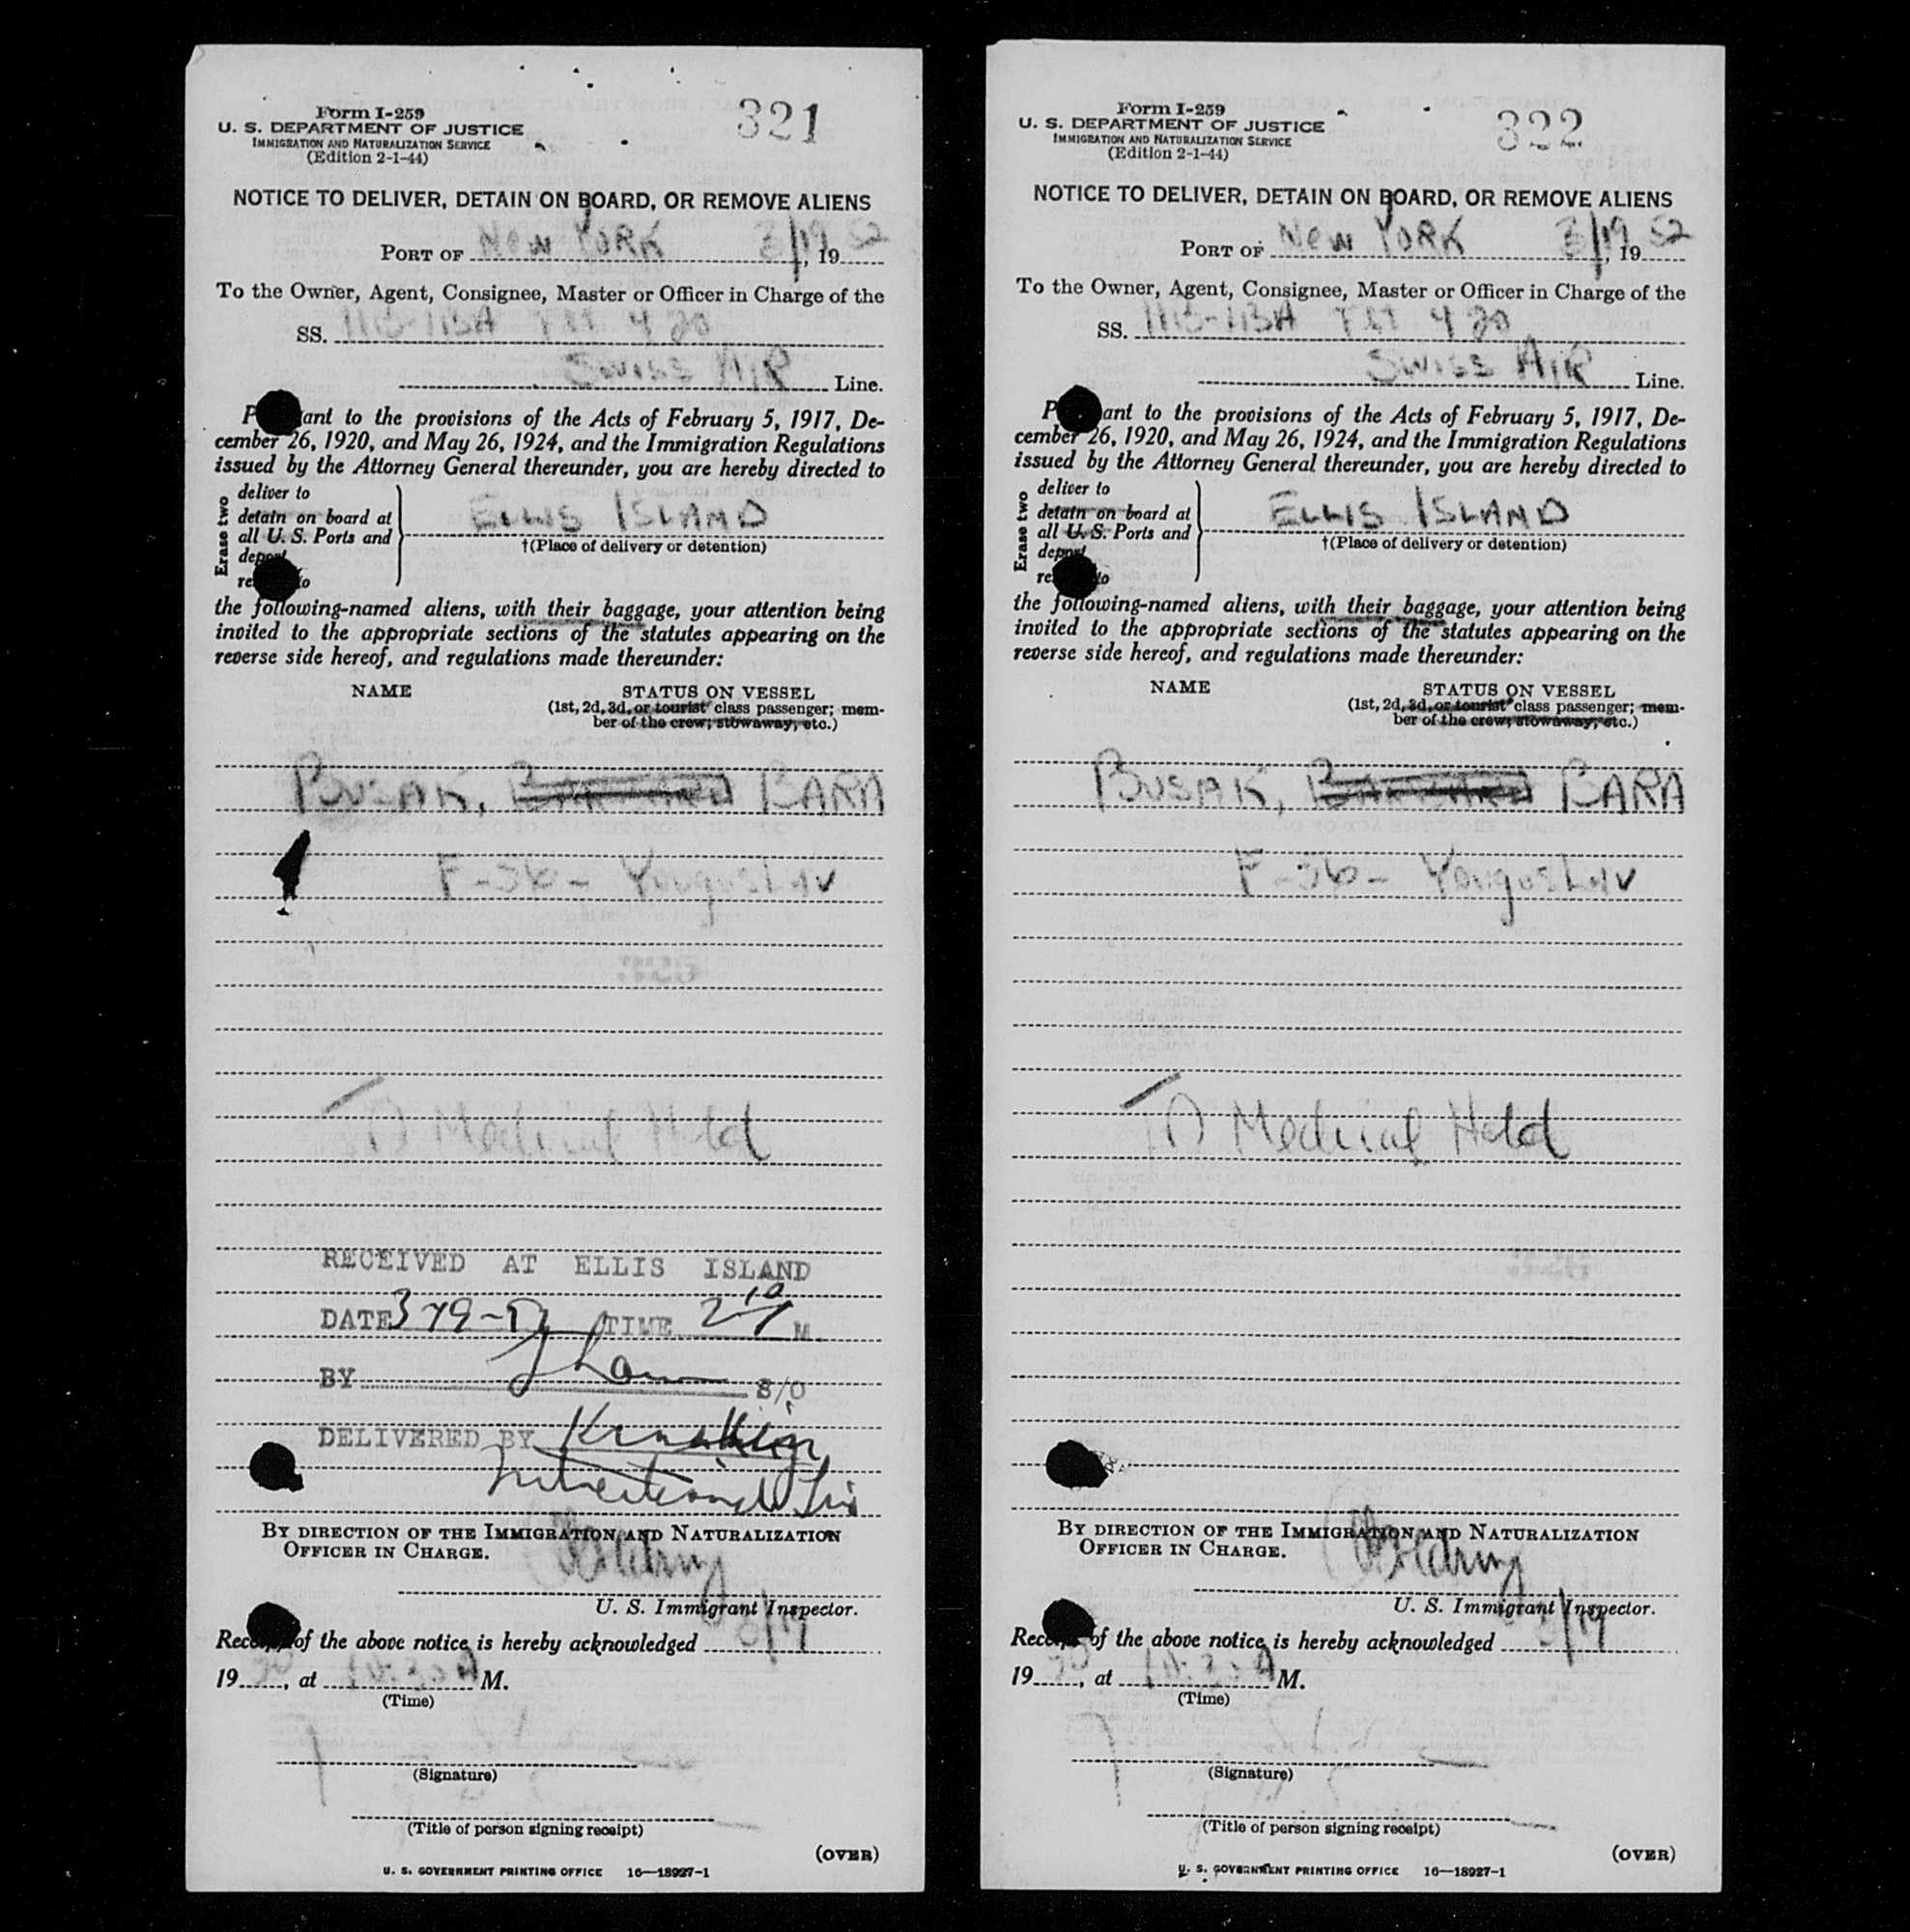 Form I-259
321
U. S. DEPARTMENT OF JUSTICE
IMMIGRATION AND NATURALIZATION SERVICE
(Edition 2-1-44)
NOTICE TO DELIVER, DETAIN ON BOARD, OR REMOVE ALIENS
PORT OF New YORK 3/19, 1952
To the Owner, Agent, Consignee, Master or Officer in Charge of the
SS. 420
SWISS AIR Line.
P ant to the provisions of the Acts of February 5, 1917, De-
cember 26, 1920, and May 26, 1924, and the Immigration Regulations
issued by the Attorney General thereunder, you are hereby directed to
Erase two
deliver to
detain on board at
all U. S. Ports and
depot
re to
ELLIS ISLAND
†(Place of delivery or detention)
the following-named aliens, with their baggage, your attention being
invited to the appropriate sections of the statutes appearing on the
reverse side hereof, and regulations made thereunder:
NAME STATUS ON VESSEL
(1st, 2d, 3d, or tourist class passenger; mem-
ber of the crew; stowaway, etc.)
BUSAK, BARA
F-36- Yougoslav
Medical Hold
RECEIVED AT ELLIS ISLAND
DATE 3-19-52 TIME 2 10 M.
BY S/O
DELIVERED BY
BY DIRECTION OF THE IMMIGRATION AND NATURALIZATION
OFFICER IN CHARGE.
U. S. Immigrant Inspector.
Receipt of the above notice is hereby acknowledged 3/19
19, at 10:30 A M.
(Time)
(Signature)
(Title of person signing receipt)
(OVER)
U. S. GOVERNMENT PRINTING OFFICE 16—18927-1
Form I-259
322
U. S. DEPARTMENT OF JUSTICE
IMMIGRATION AND NATURALIZATION SERVICE
(Edition 2-1-44)
NOTICE TO DELIVER, DETAIN ON BOARD, OR REMOVE ALIENS
PORT OF New YORK 3/19, 1952
To the Owner, Agent, Consignee, Master or Officer in Charge of the
SS. 420
SWISS AIR Line.
P ant to the provisions of the Acts of February 5, 1917, De-
cember 26, 1920, and May 26, 1924, and the Immigration Regulations
issued by the Attorney General thereunder, you are hereby directed to
Erase two
deliver to
detain on board at
all U. S. Ports and
depot
re to
ELLIS ISLAND
†(Place of delivery or detention)
the following-named aliens, with their baggage, your attention being
invited to the appropriate sections of the statutes appearing on the
reverse side hereof, and regulations made thereunder:
NAME STATUS ON VESSEL
(1st, 2d, 3d, or tourist class passenger; mem-
ber of the crew; stowaway, etc.)
BUSAK, BARA
F-36- Yougoslav
Medical Hold
BY DIRECTION OF THE IMMIGRATION AND NATURALIZATION
OFFICER IN CHARGE.
U. S. Immigrant Inspector.
Receipt of the above notice is hereby acknowledged 3/19
19, at 10:30 A M.
(Time)
(Signature)
(Title of person signing receipt)
(OVER)
U. S. GOVERNMENT PRINTING OFFICE 16—18927-1